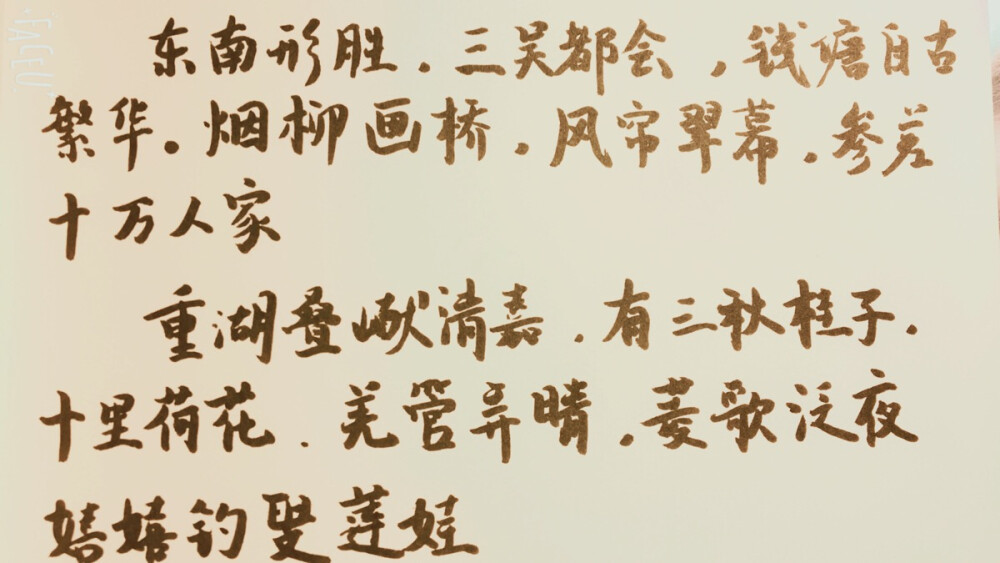 FACEU
东南形胜，三吴都会，钱塘自古
繁华。烟柳画桥，风帘翠幕，参差
十万人家
重湖叠巘清嘉，有三秋桂子，
十里荷花．羌管弄晴，菱歌泛夜
嬉嬉钓叟莲娃